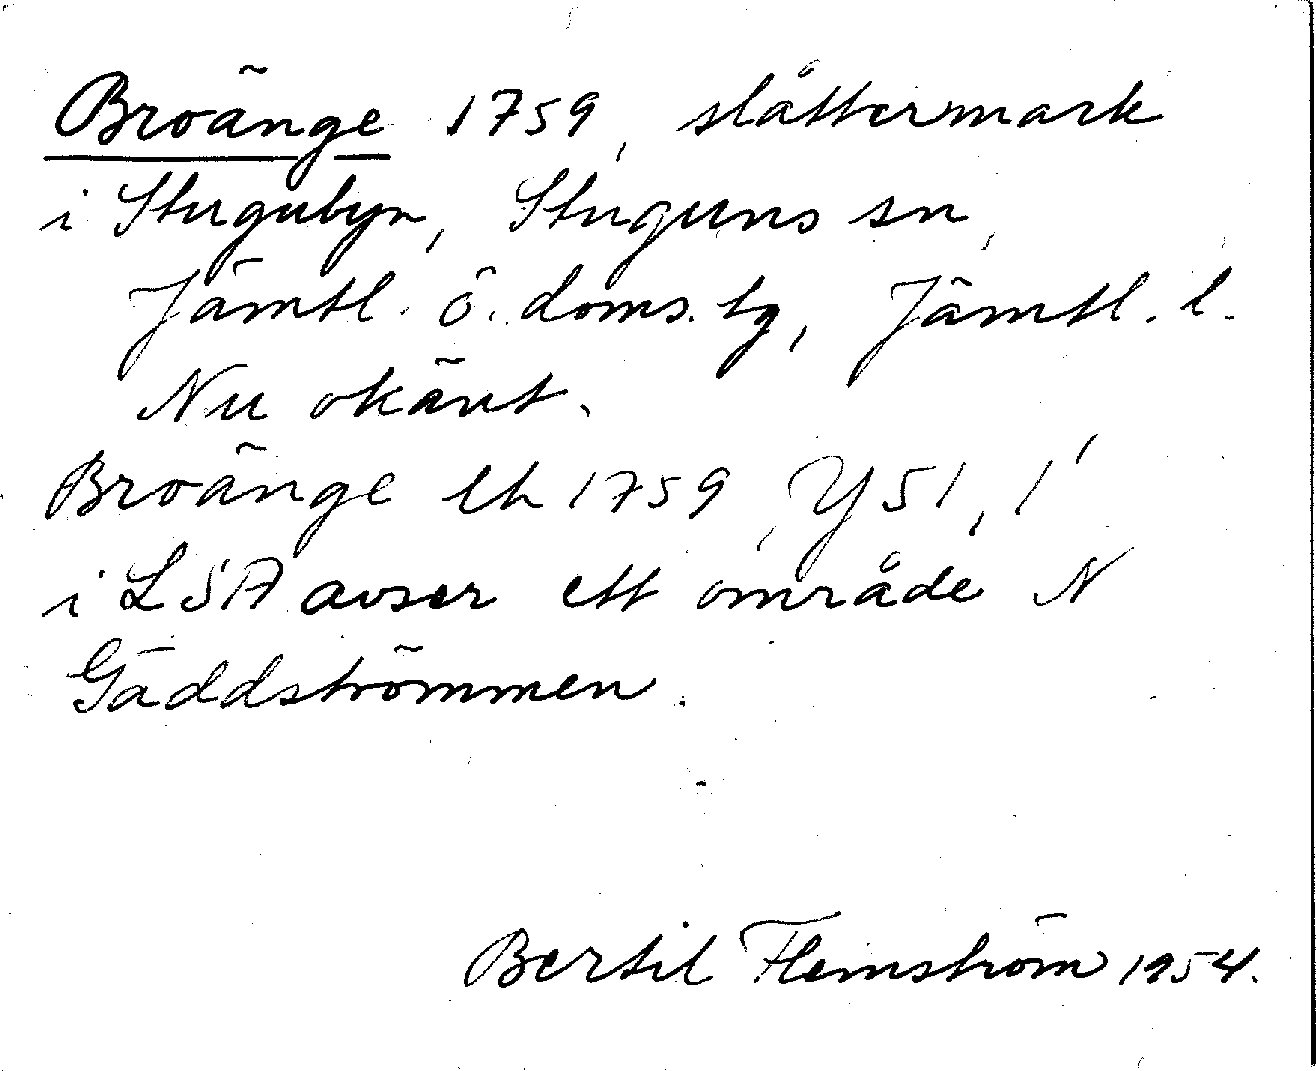 Broänge 1759, slåttermark
i Stugubyn, Stuguns sn,
Jämtl. ö. doms. tg, Jämtl. l.
Nu okänt.
Broänge lh 1759, Y 51, 1
i LSA avser ett område N
Gäddströmmen.
Bertil Flemström 1954.